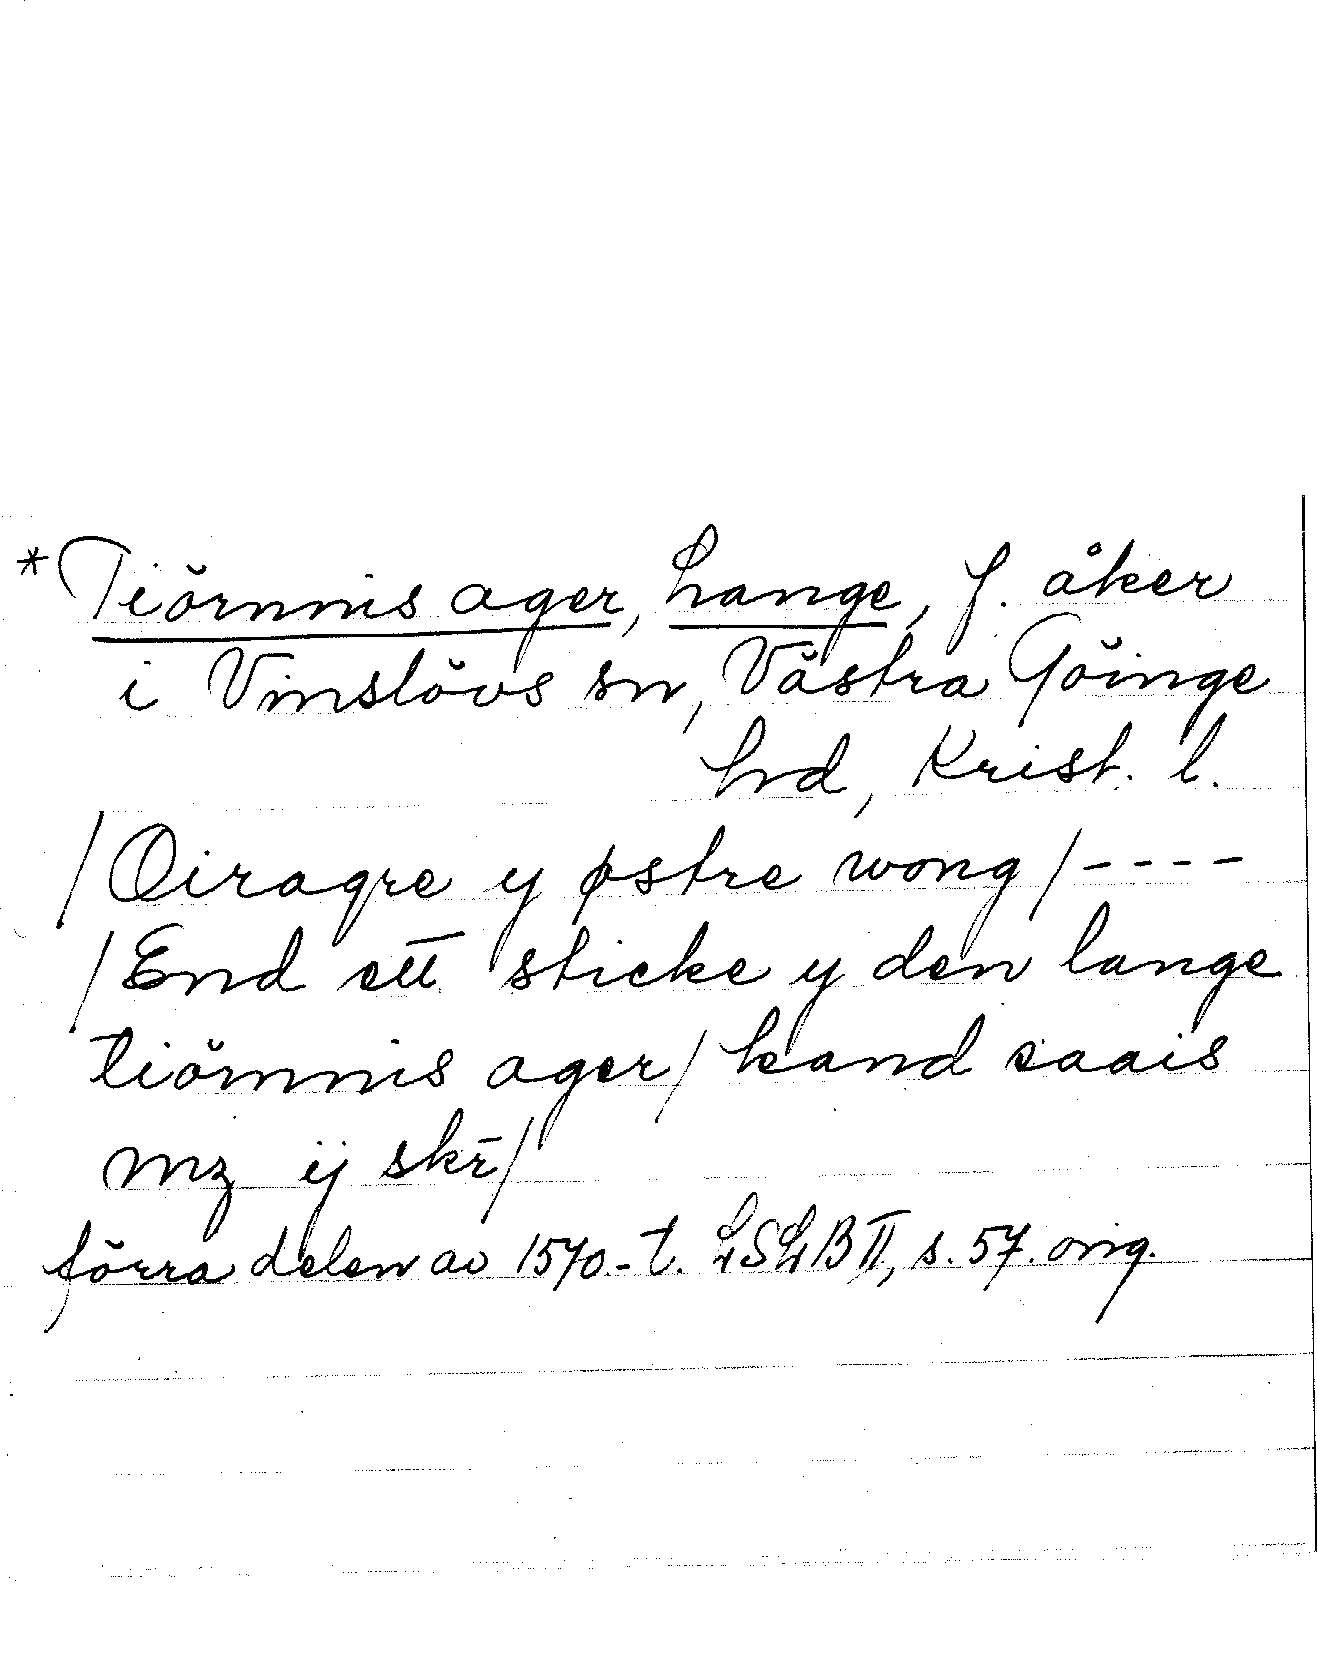 *Tiörnnis ager, Lange, f. åker
i Vinslövs sn, Västra Göinge
hrd, Krist. l.
/Oiragre y østre wong/----
/End ett sticke y den lange
tiörnnis ager/ kand saais
mz ij skr̄/
förra delen av 1570-t. LSLB II, s. 57. orig.